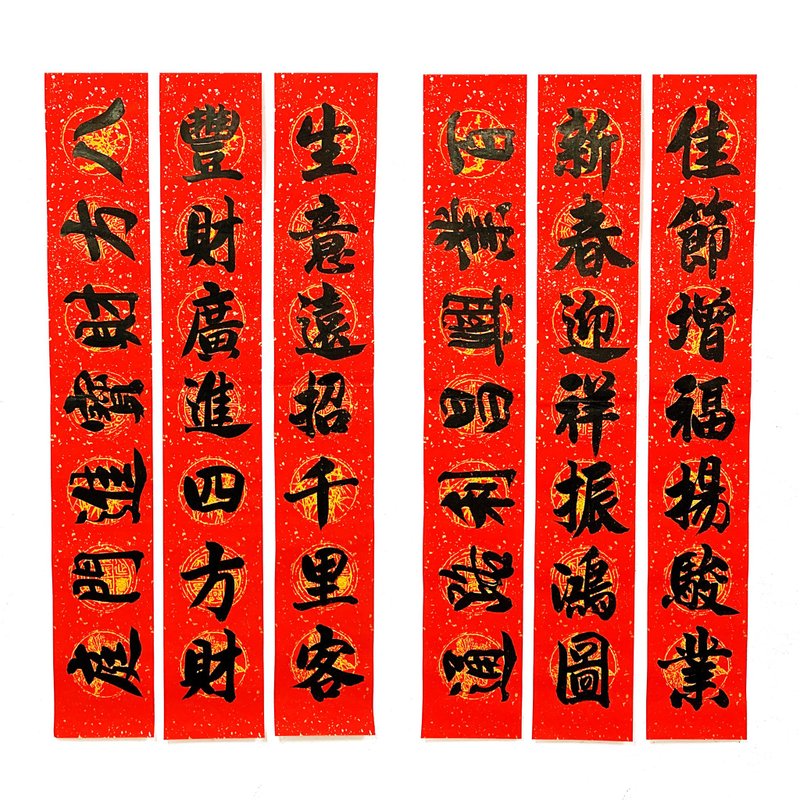 佳節增福揚駿業
新春迎祥振鴻圖
百業興昌利路
生意遠招千里客
豐財廣進四方財
八方財寶進門庭